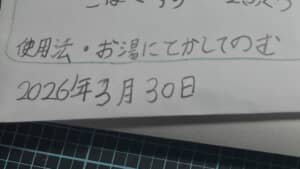 使用法・お湯にてかしてのむ
2026年3月30日